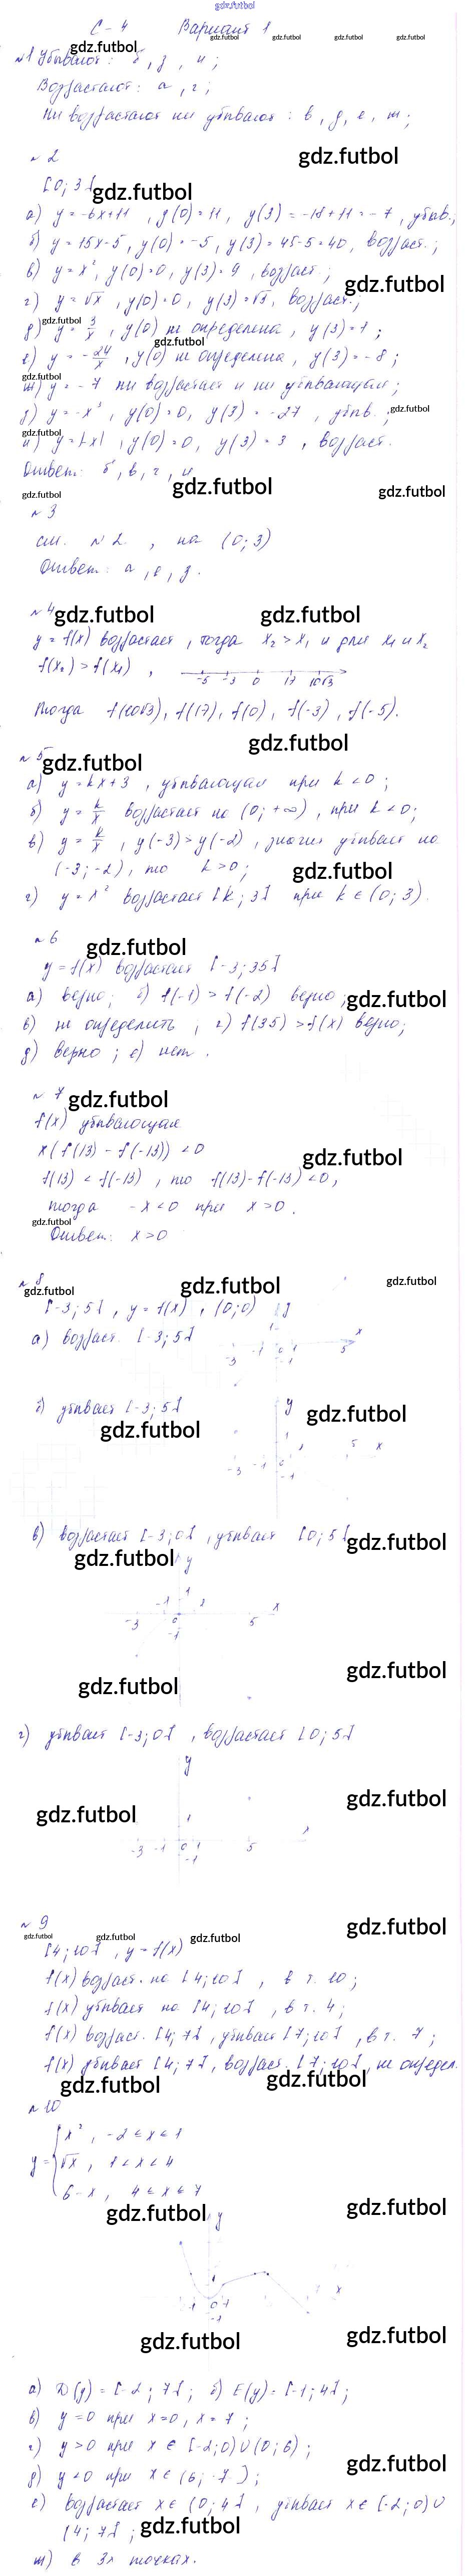 gdz.futbol
С-4 Вариант 1
gdz.futbol gdz.futbol gdz.futbol gdz.futbol
№1 Убывают: б, з, и;
gdz.futbol
Возрастают: а, г;
Ни возрастают ни убывают: в, д, е, ж;
№2
gdz.futbol
[0; 3]
gdz.futbol
а) y = -6x+11, y(0) = 11, y(3) = -18+11 = -7, убыв.;
б) y = 15x-5, y(0) = -5, y(3) = 45-5 = 40, возраст.;
в) y = x², y(0) = 0, y(3) = 9, возраст.;
gdz.futbol
г) y = √x, y(0) = 0, y(3) = √3, возраст.;
gdz.futbol
д) y = 3/x, y(0) не определена, y(3) = 1;
gdz.futbol
е) y = -24/x, y(0) не определена, y(3) = -8;
gdz.futbol
ж) y = -7 ни возрастает и ни убывающая;
з) y = -x³, y(0) = 0, y(3) = -27, убыв.;
gdz.futbol
gdz.futbol
и) y = |x|, y(0) = 0, y(3) = 3, возраст.
Ответ: б, в, г, и
gdz.futbol gdz.futbol gdz.futbol
№3
см. №2, на (0; 3)
Ответ: а, з.
№4
gdz.futbol gdz.futbol
y = f(x) возрастает, тогда x₂ > x₁ и для x₁ и x₂
f(x₂) > f(x₁),
-5 -3 0 17 10√3
Тогда f(10√3), f(17), f(0), f(-3), f(-5).
gdz.futbol
№5
gdz.futbol
а) y = kx+3, убывающая при k < 0;
б) y = k/x возрастает на (0; +∞), при k < 0;
в) y = k/x, y(-3) > y(-2), значит убывает на
(-3; -2), то k > 0;
gdz.futbol
г) y = x² возрастает [k; 3] при k ∈ (0; 3).
№6
gdz.futbol
y = f(x) возрастает [-3; 35]
а) верно; б) f(-1) > f(-2) верно;
gdz.futbol
в) не определить; г) f(35) > f(x) верно;
д) верно; е) нет.
№7
gdz.futbol
f(x) убывающая
x(f(13) - f(-13)) < 0
gdz.futbol
f(13) < f(-13), то f(13) - f(-13) < 0,
тогда -x < 0 при x > 0.
gdz.futbol
Ответ: x > 0
№8
gdz.futbol gdz.futbol gdz.futbol
[-3; 5], y = f(x), (0; 0) y
а) возраст. [-3; 5]
x
-3 -1 0 1 5
-1
б) убывает [-3; 5]
y
gdz.futbol
gdz.futbol
1
5 x
-3 -1 0 1
-1
в) возрастает [-3; 0], убывает [0; 5]
gdz.futbol
gdz.futbol
y
1
-3 -1 0 5 x
-1
gdz.futbol
gdz.futbol
г) убывает [-3; 0], возрастает [0; 5]
y
gdz.futbol
gdz.futbol
1
-3 -1 0 1 5
-1
№9
gdz.futbol
gdz.futbol gdz.futbol gdz.futbol
[4; 10], y = f(x)
f(x) возраст. на [4; 10], в т. 10;
f(x) убывает на [4; 10], в т. 4;
f(x) возраст. [4; 7], убывает [7; 10], в т. 7;
f(x) убывает [4; 7], возраст. [7; 10], не определ.
gdz.futbol gdz.futbol
№10
x², -2 ≤ x ≤ 1
y = { √x, 1 < x < 4
6-x, 4 ≤ x ≤ 7
gdz.futbol gdz.futbol
y
-1 0 1 x
-1
gdz.futbol gdz.futbol
а) D(y) = [-2; 7]; б) E(y) = [-1; 4];
в) y = 0 при x = 0, x = 7;
г) y > 0 при x ∈ [-2; 0) ∪ (0; 6);
gdz.futbol
д) y < 0 при x ∈ (6; 7];
е) возрастает x ∈ (0; 4], убывает x ∈ [-2; 0) ∪
[4; 7];
gdz.futbol
ж) в 3х точках.